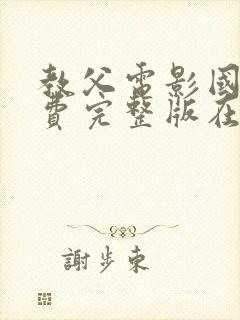 教父電影國
費完整版在
謝步東